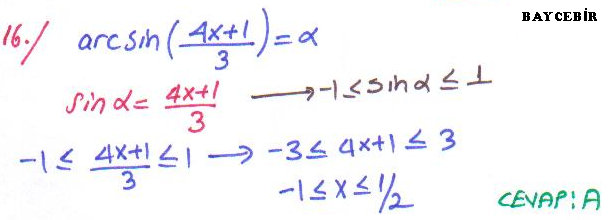 BAYCEBİR
16./ arcsin(4x+1/3)=α
sinα= 4x+1/3 → -1≤sinα≤1
-1≤ 4x+1/3 ≤1 → -3≤4x+1≤3
-1≤x≤1/2
CEVAP:A